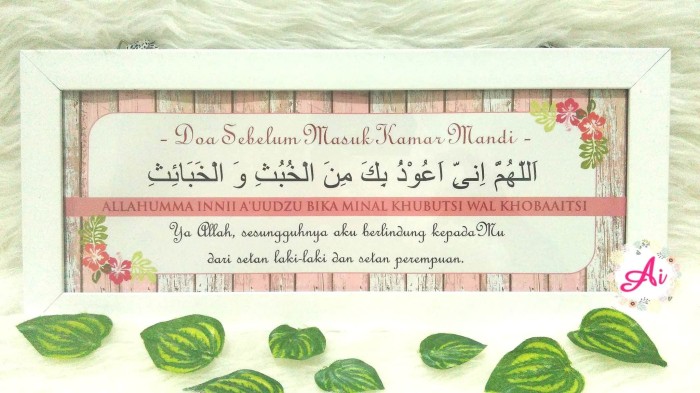 - Doa Sebelum Masuk Kamar Mandi -
اَللّٰهُمَّ اِنِىّ اَعُوْذُ بِكَ مِنَ الْخُبُثِ وَ الْخَبَائِثِ
ALLAHUMMA INNII A'UUDZU BIKA MINAL KHUBUTSI WAL KHOBAAITSI
Ya Allah, sesungguhnya aku berlindung kepadaMu
dari setan laki-laki dan setan perempuan.
Ai